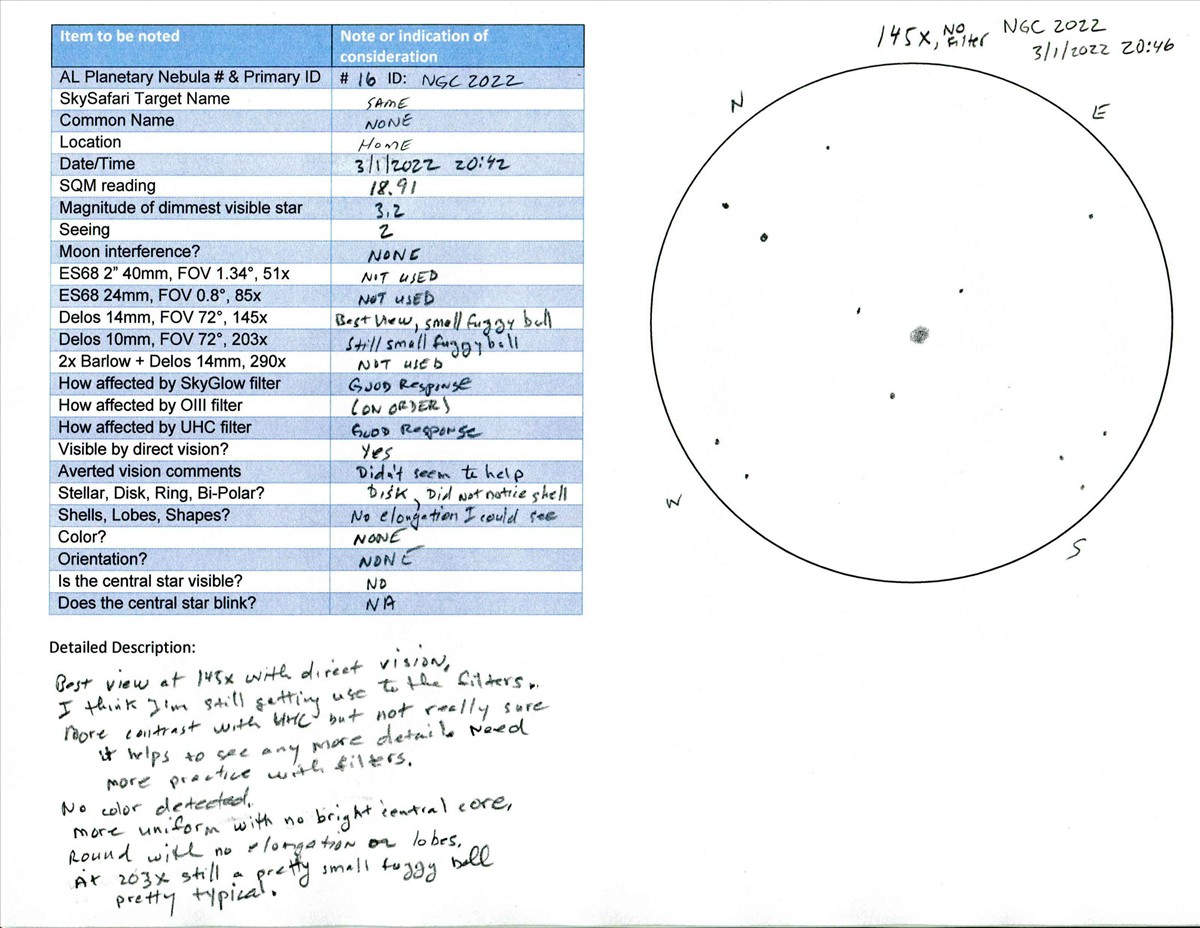 Item to be noted Note or indication of consideration
AL Planetary Nebula # & Primary ID # 16 ID: NGC 2022
SkySafari Target Name SAME
Common Name NONE
Location HOME
Date/Time 3/1/2022 20:42
SQM reading 18.91
Magnitude of dimmest visible star 3.2
Seeing 2
Moon interference? NONE
ES68 2” 40mm, FOV 1.34°, 51x NOT USED
ES68 24mm, FOV 0.8°, 85x NOT USED
Delos 14mm, FOV 72°, 145x Best View, small fuzzy ball
Delos 10mm, FOV 72°, 203x Still small fuzzy ball
2x Barlow + Delos 14mm, 290x NOT USED
How affected by SkyGlow filter GOOD Response
How affected by OIII filter (ON ORDER)
How affected by UHC filter GOOD Response
Visible by direct vision? Yes
Averted vision comments Didn't seem to help
Stellar, Disk, Ring, Bi-Polar? DISK, Did Not notice shell
Shells, Lobes, Shapes? No elongation I could see
Color? NONE
Orientation? NONE
Is the central star visible? NO
Does the central star blink? NA
Detailed Description:
Best view at 145x with direct vision,
I think I'm still getting use to the filters.
More contrast with UHC but not really sure
it helps to see any more detail. Need
more practice with filters.
No color detected.
more uniform with no bright central core,
Round with no elongation or lobes.
At 203x still a pretty small fuzzy ball
pretty typical.
145x, NO Filter NGC 2022
3/1/2022 20:46
N
E
W
S